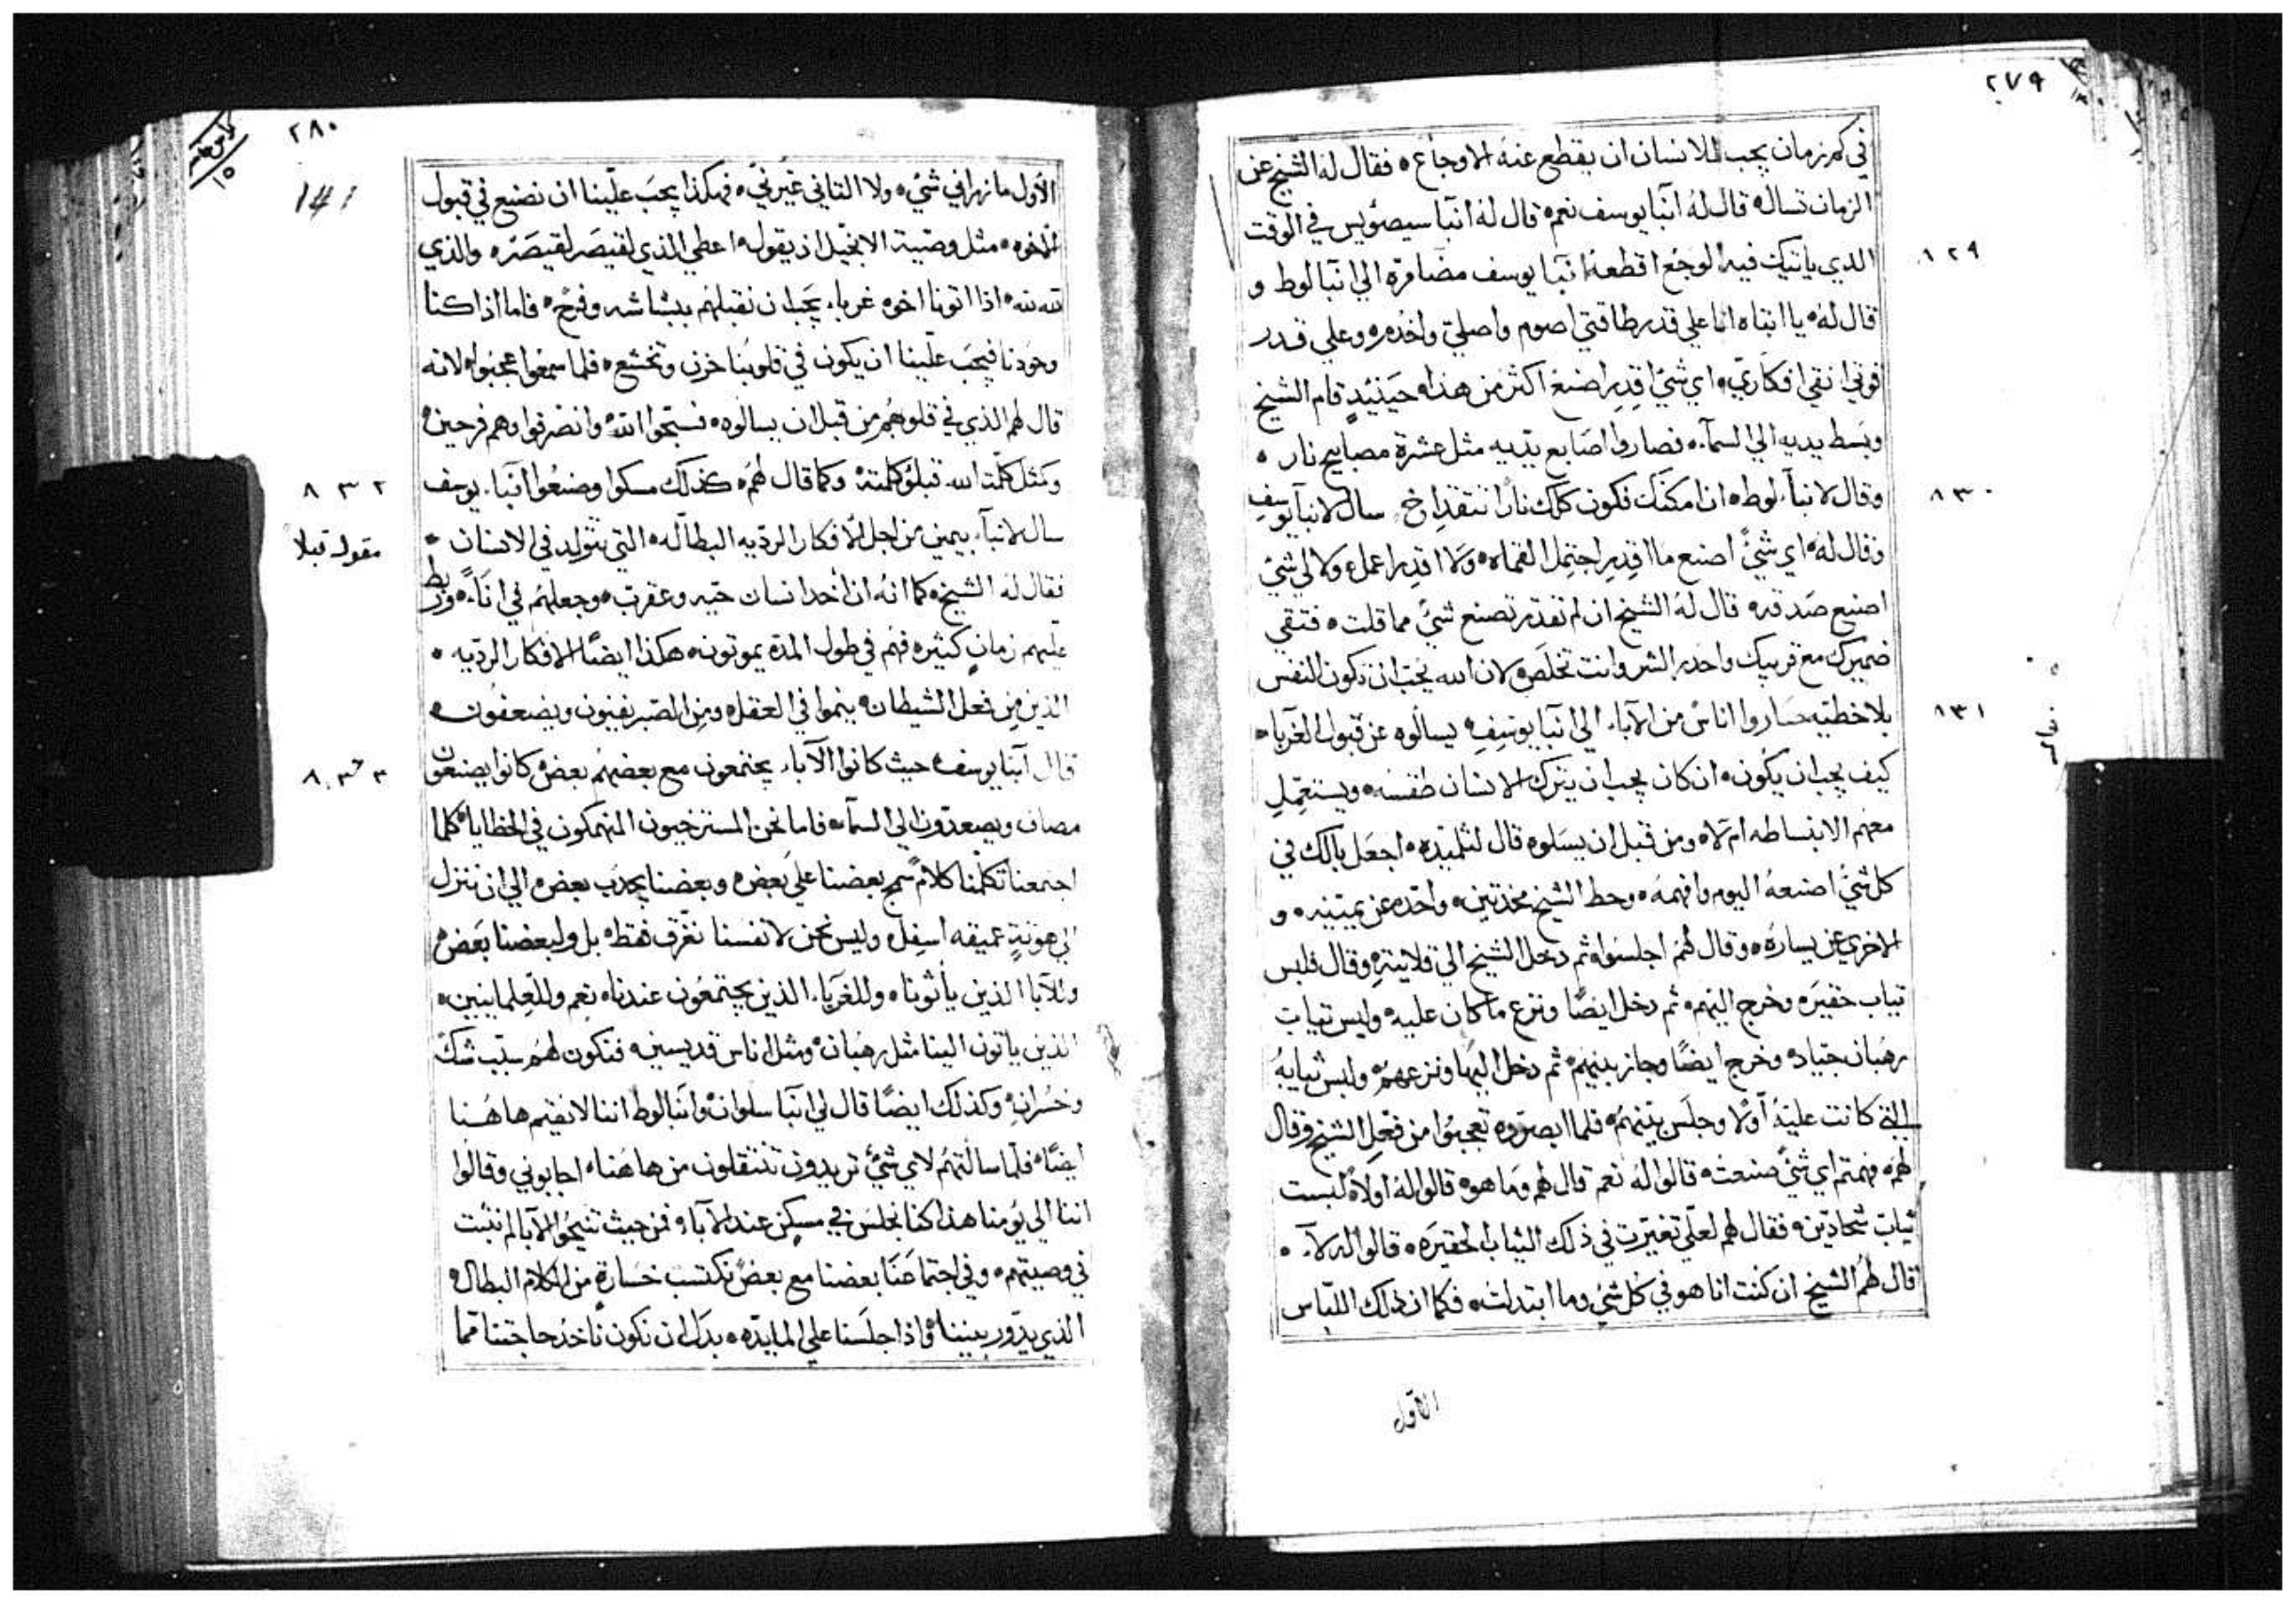 ٢٧٩
في كم زمان يجب للانسان ان يقطع عنه الاوجاع ه فقال له الشيخ عن
الزمان تساله قال له آنبا يوسف نعم ه قال له انبا سيصوُيس في الوقت
٨٢٩
الذي ياتيك فيه الوجع اقطعه انبا يوسف مضا مره الي انبا لوط و
قال له ه يا ابتاه انا علي قدر طاقتي اصوم واصلي واخدم ه وعلي قدر
قوتي انقي افكاري ه اي شي اقدر اصنع اكثر من هذا ه حينيدٍ قام الشيخ
وبسط يديه الي السمآء ه فصاروا اصابع يديه مثل عشرة مصابيح نار ه
٨٣٠
وقال لانبا لوط ه ان امكنك فكون كلك نارًا تتقد اخ سال لانبا يوسف
وقال له ه اي شي اصنع ما اقدر احتمل الغماه ه ولا اقدر اعمل ه ولا لي شي
اصنع صدقه ه قال له الشيخ ان لم تقدر تصنع شي مما قلت ه فتقي
ضميرك مع قريبك واحدر الشر وانت تخلص ه لان الله يحب ان تكون النفس
٨٣١
بلا خطيه صاروا اناس من الآباء الي انبا يوسف ه يسالوه عن قبول الغربا ه
كيف يجب ان يكون ه ان كان يجب ان يترك الانسان طقسه ه ويستعمل
معهم الانبساط ه ام لا ه ومن قبل ان يسلوه قال لتلميذه ه اجعل بالك في
كل شي اصنعه اليوم وافهمه ه وحط الشيخ مخدتين ه واحده عن يمينه ه و
الاخري عن يساره ه وقال لهم اجلسوا ه ثم دخل الشيخ الي قلايته ه وقال فلبس
تياب حقيره وخرج اليهم ه ثم دخل ايضًا ونزع ما كان عليه ه ولبس تياب
رهبان جياد ه وخرج ايضًا وجاز بينهم ه ثم دخل ايضًا ونزعهم ه ولبس ثيابه
التي كانت عليه آولًا وجلس بينهم ه فلما ابصروه تعجبوا من فعل الشيخ وقال
لهم ه فهمتم اي شي صنعت ه قالوا له نعم قال لهم وما هو ه قالوا له اولاً لبست
ثياب شحادين ه فقال لهم لعلي تغيرت في ذلك الثياب الحقيره ه قالوا له لآ ه
قال لهم الشيخ ان كنت انا هو في كل شي وما ابتدلت ه فكما ان ذلك اللباس
الاول
٢٨٠
141
الاول ما نهراني شي ه ولا الثاني غيرني ه فهكذا يجب علينا ان نصنع في قبول
الاخوه ه مثل وصية الانجيل اذ يقول ه اعطي الذي لقيصر لقيصر ه والذي
لله لله ه اذا اتونا اخوه غرباء يجب ان نقبلهم ببشاشه وفرح ه فاما اذا كنا
وحودنا فيجب علينا ان يكون في قلوبنا حزن وتخشع ه فلما سمعوا عجبوا ه لانه
قال لهم الذي في قلوبهم من قبل ان يسالوه ه فسبحوا الله ه وانصرفوا وهم فرحين ه
٨٣٢
وكمثل كلمة الله قبلو كلمته ه وكما قال لهم ه كذلك مسكوا وصنعوا انبا يوسف
مقوله قبلاً
سال لانبآ بيمين من اجل الافكار الرديه البطاله ه التي تتولد في الانسان ه
فقال له الشيخ ه كما انه ان أخد انسان حيه وعقرب ه وجعلهم في اناء ه وربط
عليهم زمان كثير ه فهم في طول المدة يموتون ه هكذا ايضًا الافكار الرديه ه
الذين من فعل الشيطان ه ينموا في العقل ه ومن الصبر يفنون ويضعفون ه
٨٣٣
قال آنبا يوسف ه حيث كانوا الآباء يجتمعون مع بعضهم بعض ه كانوا يصنعون
مصاف ويصعدون الي السماء ه فاما نحن المسترخيون المنهمكون في الخطايا ه كلما
اجتمعنا تكلمنا كلام سمج بعضنا علي بعض ه وبعضنا يجدب بعض ه الي ان ننزل
الي هوتةٍ عميقه اسفل ه وليس نحن لانفسنا نغرق فقط ه بل ولبعضنا بعض ه
وللآبا الذين ياتونا ه وللغربآء الذين يجتمعون عندنا ه نعم وللعلمانيين ه
الذين ياتون الينا مثل رهبان ه ومثل اناس قديسين ه فنكون لهم سبب شك
وخسران ه وكذلك ايضًا قال لي انبا سلوان ه وانبا لوط اننا لا نقيم هاهنا
ايضًا ه فلما سالتهم لاي شي تريدون تنتقلون من هاهنا ه اجابوني وقالوا
اننا الي يومنا هذا كنا نجلس في مسكن عند الآباء ه فمن حيث تنيحوا الآبا لم نثبت
في وصيتهم ه وفي اجتماعنا بعضنا مع بعض نكتسب خسارة من الكلام البطال ه
الذي يدور بيننا ه واذا جلسنا علي المايده ه بدل ان نكون ناخد حاجتنا مما